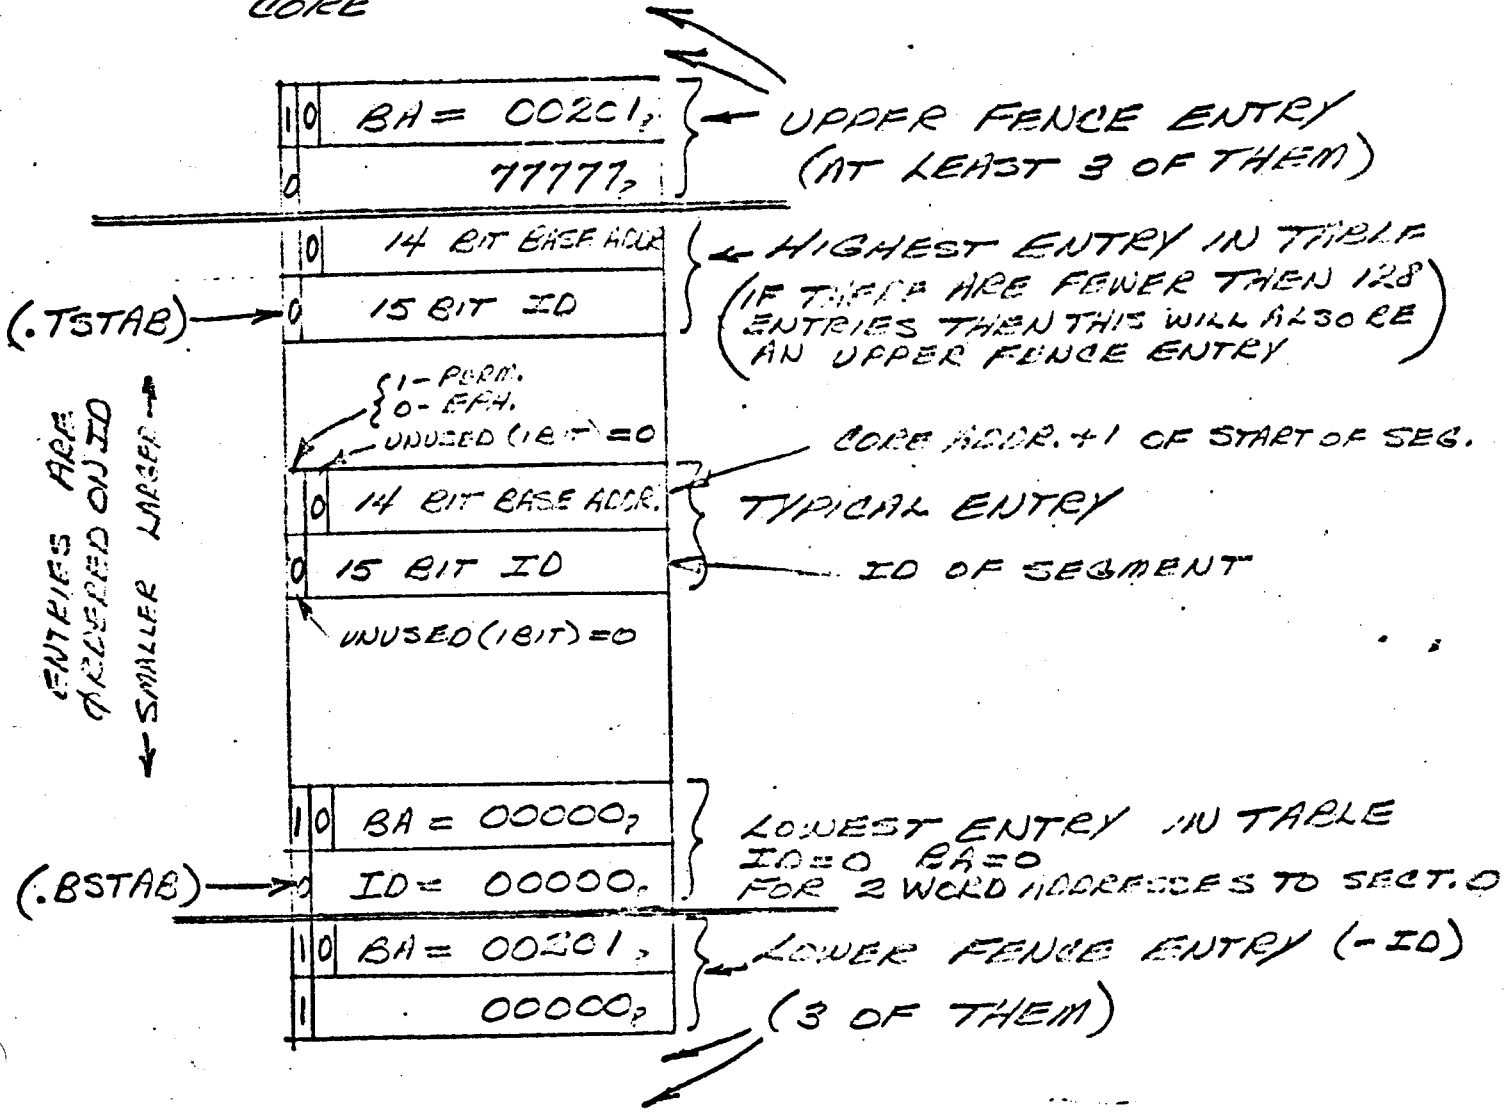 CORE
1 0 BA = 00201,
0 77777,
UPPER FENCE ENTRY
(AT LEAST 3 OF THEM)
0 14 BIT BASE ADDR
0 15 BIT ID
HIGHEST ENTRY IN TABLE
(IF THERE ARE FEWER THEN 128
ENTRIES THEN THIS WILL ALSO BE
AN UPPER FENCE ENTRY)
(.TSTAB)
ENTRIES ARE
ØRDERED ON ID
← SMALLER LARGER →
{1 - PERM.
{0 - EPH.
UNUSED (1 BIT) = 0
0 14 BIT BASE ADDR.
0 15 BIT ID
CORE ADDR. +1 OF START OF SEG.
TYPICAL ENTRY
ID OF SEGMENT
UNUSED (1 BIT) = 0
1 0 BA = 00000,
0 ID = 00000,
(.BSTAB)
LOWEST ENTRY IN TABLE
ID=0 BA=0
FOR 2 WORD ADDRESSES TO SECT. 0
1 0 BA = 00201,
1 00000,
LOWER FENCE ENTRY (-ID)
(3 OF THEM)